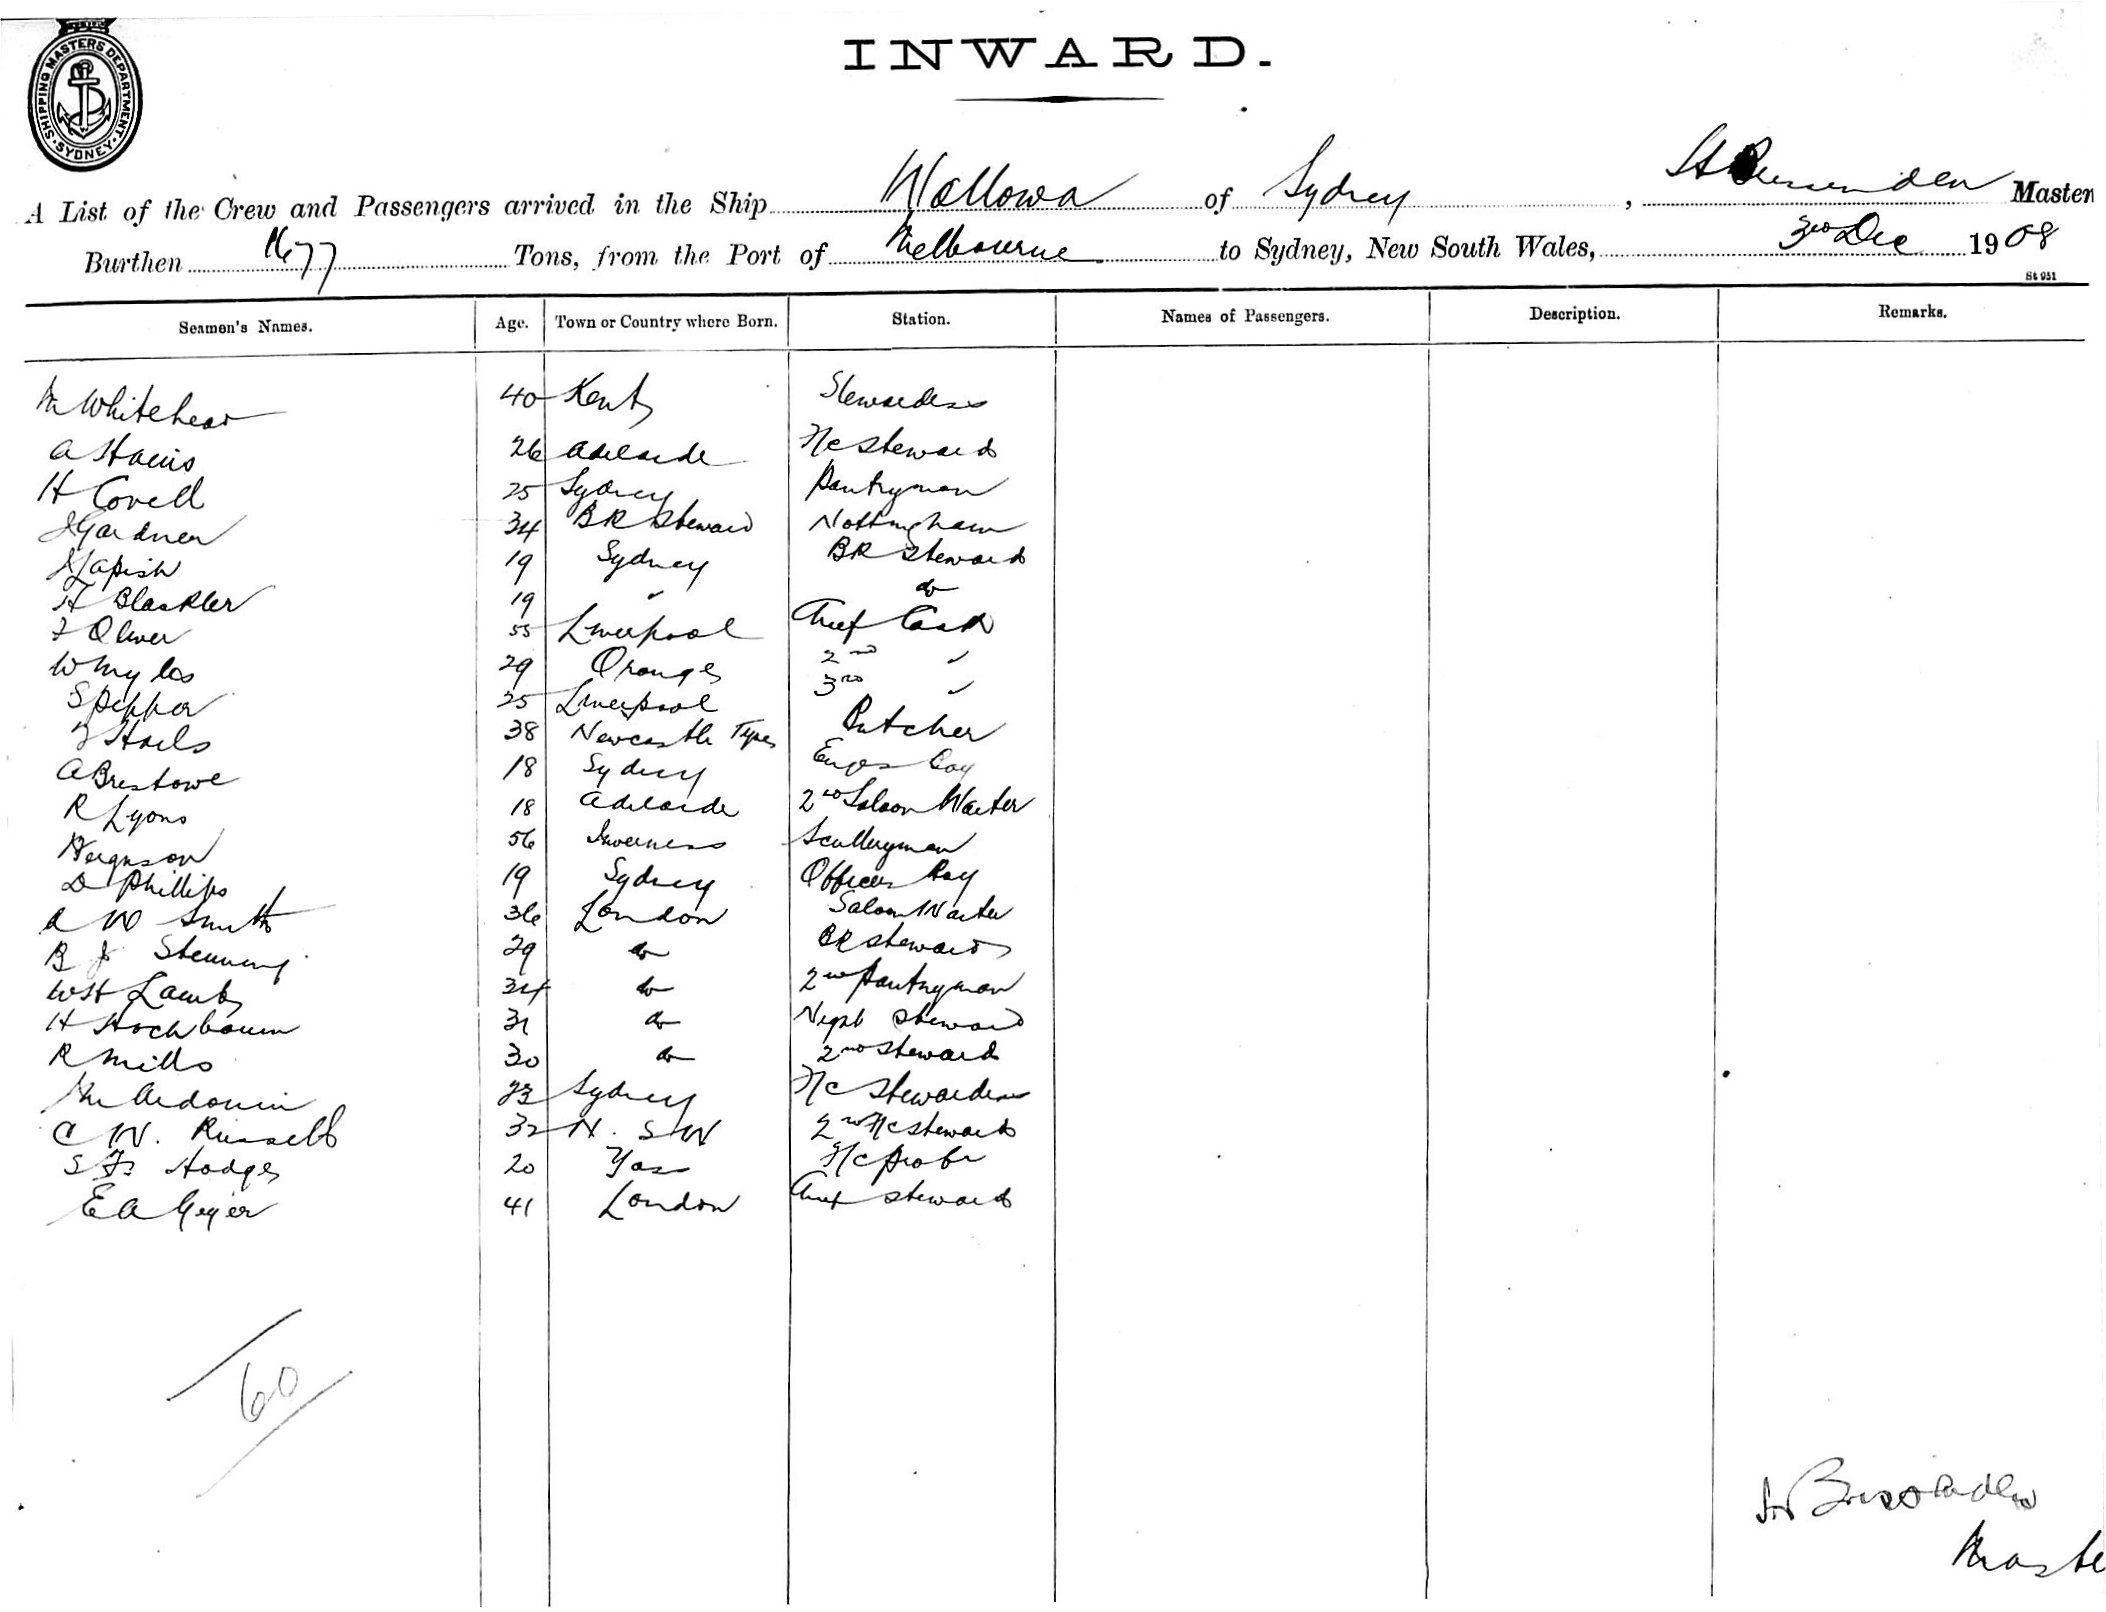 SHIPPING MASTERS DEPARTMENT · SYDNEY ·
INWARD.
A List of the Crew and Passengers arrived in the Ship Wollowa of Sydney, Master
Burthen 1677 Tons, from the Port of Melbourne to Sydney, New South Wales, 3rd Dec 1908
St 951
Seamen's Names. Age. Town or Country where Born. Station. Names of Passengers. Description. Remarks.
M Whitehead 40 Kent Stewardess
A 26 Adelaide FC Steward
H Covell 25 Sydney Pantryman
J Gardner 34 BR Steward Nottingham
Lapish 19 Sydney BR Steward
H Blackler 19 " do
F Oliver 55 Liverpool Chief Cook
W Myles 29 Orange 2nd "
S Pepper 25 Liverpool 3rd "
Hails 38 Newcastle Butcher
A Brestowe 18 Sydney Engrs Boy
R Lyons 18 Adelaide 2nd Saloon Waiter
Ferguson 56 Inverness Sculleryman
D Phillips 19 Sydney Officers Boy
A W Smith 36 London Saloon Waiter
B J Stenning 29 do BR Steward
WH Lamb 34 do 2nd Pantryman
H Hochbaum 31 do Night Steward
R Mills 30 do 2nd Steward
23 Sydney FC Stewardess
C W. Russell 32 N. S W 2nd FC Steward
S F Hodges 20 Yass FC
E A Geyer 41 London Chief Steward
60
Maste